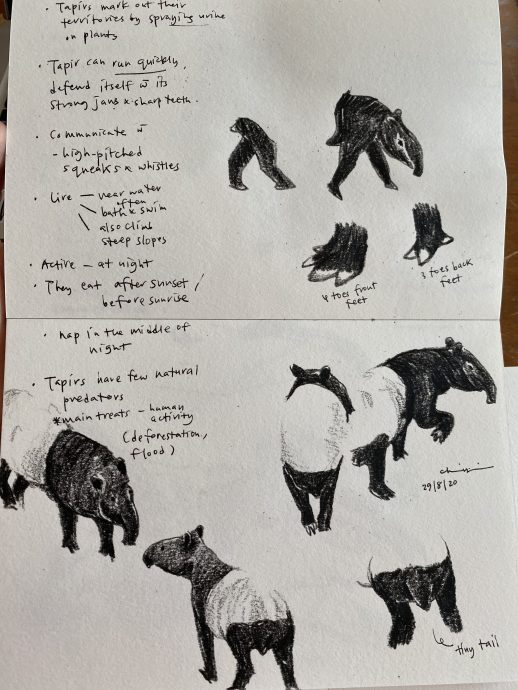 • Tapirs mark out their
territories by spraying urine
on plants
• Tapir can run quickly,
defend itself w̄ its
strong jaws & sharp teeth.
• Communicate w̄
- high-pitched
squeaks & whistles
• Live — near water
often
bath & swim
also climb
steep slopes
• Active — at night
• They eat after sunset /
before sunrise
4 toes front
feet
3 toes back
feet
• nap in the middle of
night
• Tapirs have few natural
predators
*main treats — human
activity
(deforestation,
flood)
29/8/20
tiny tail